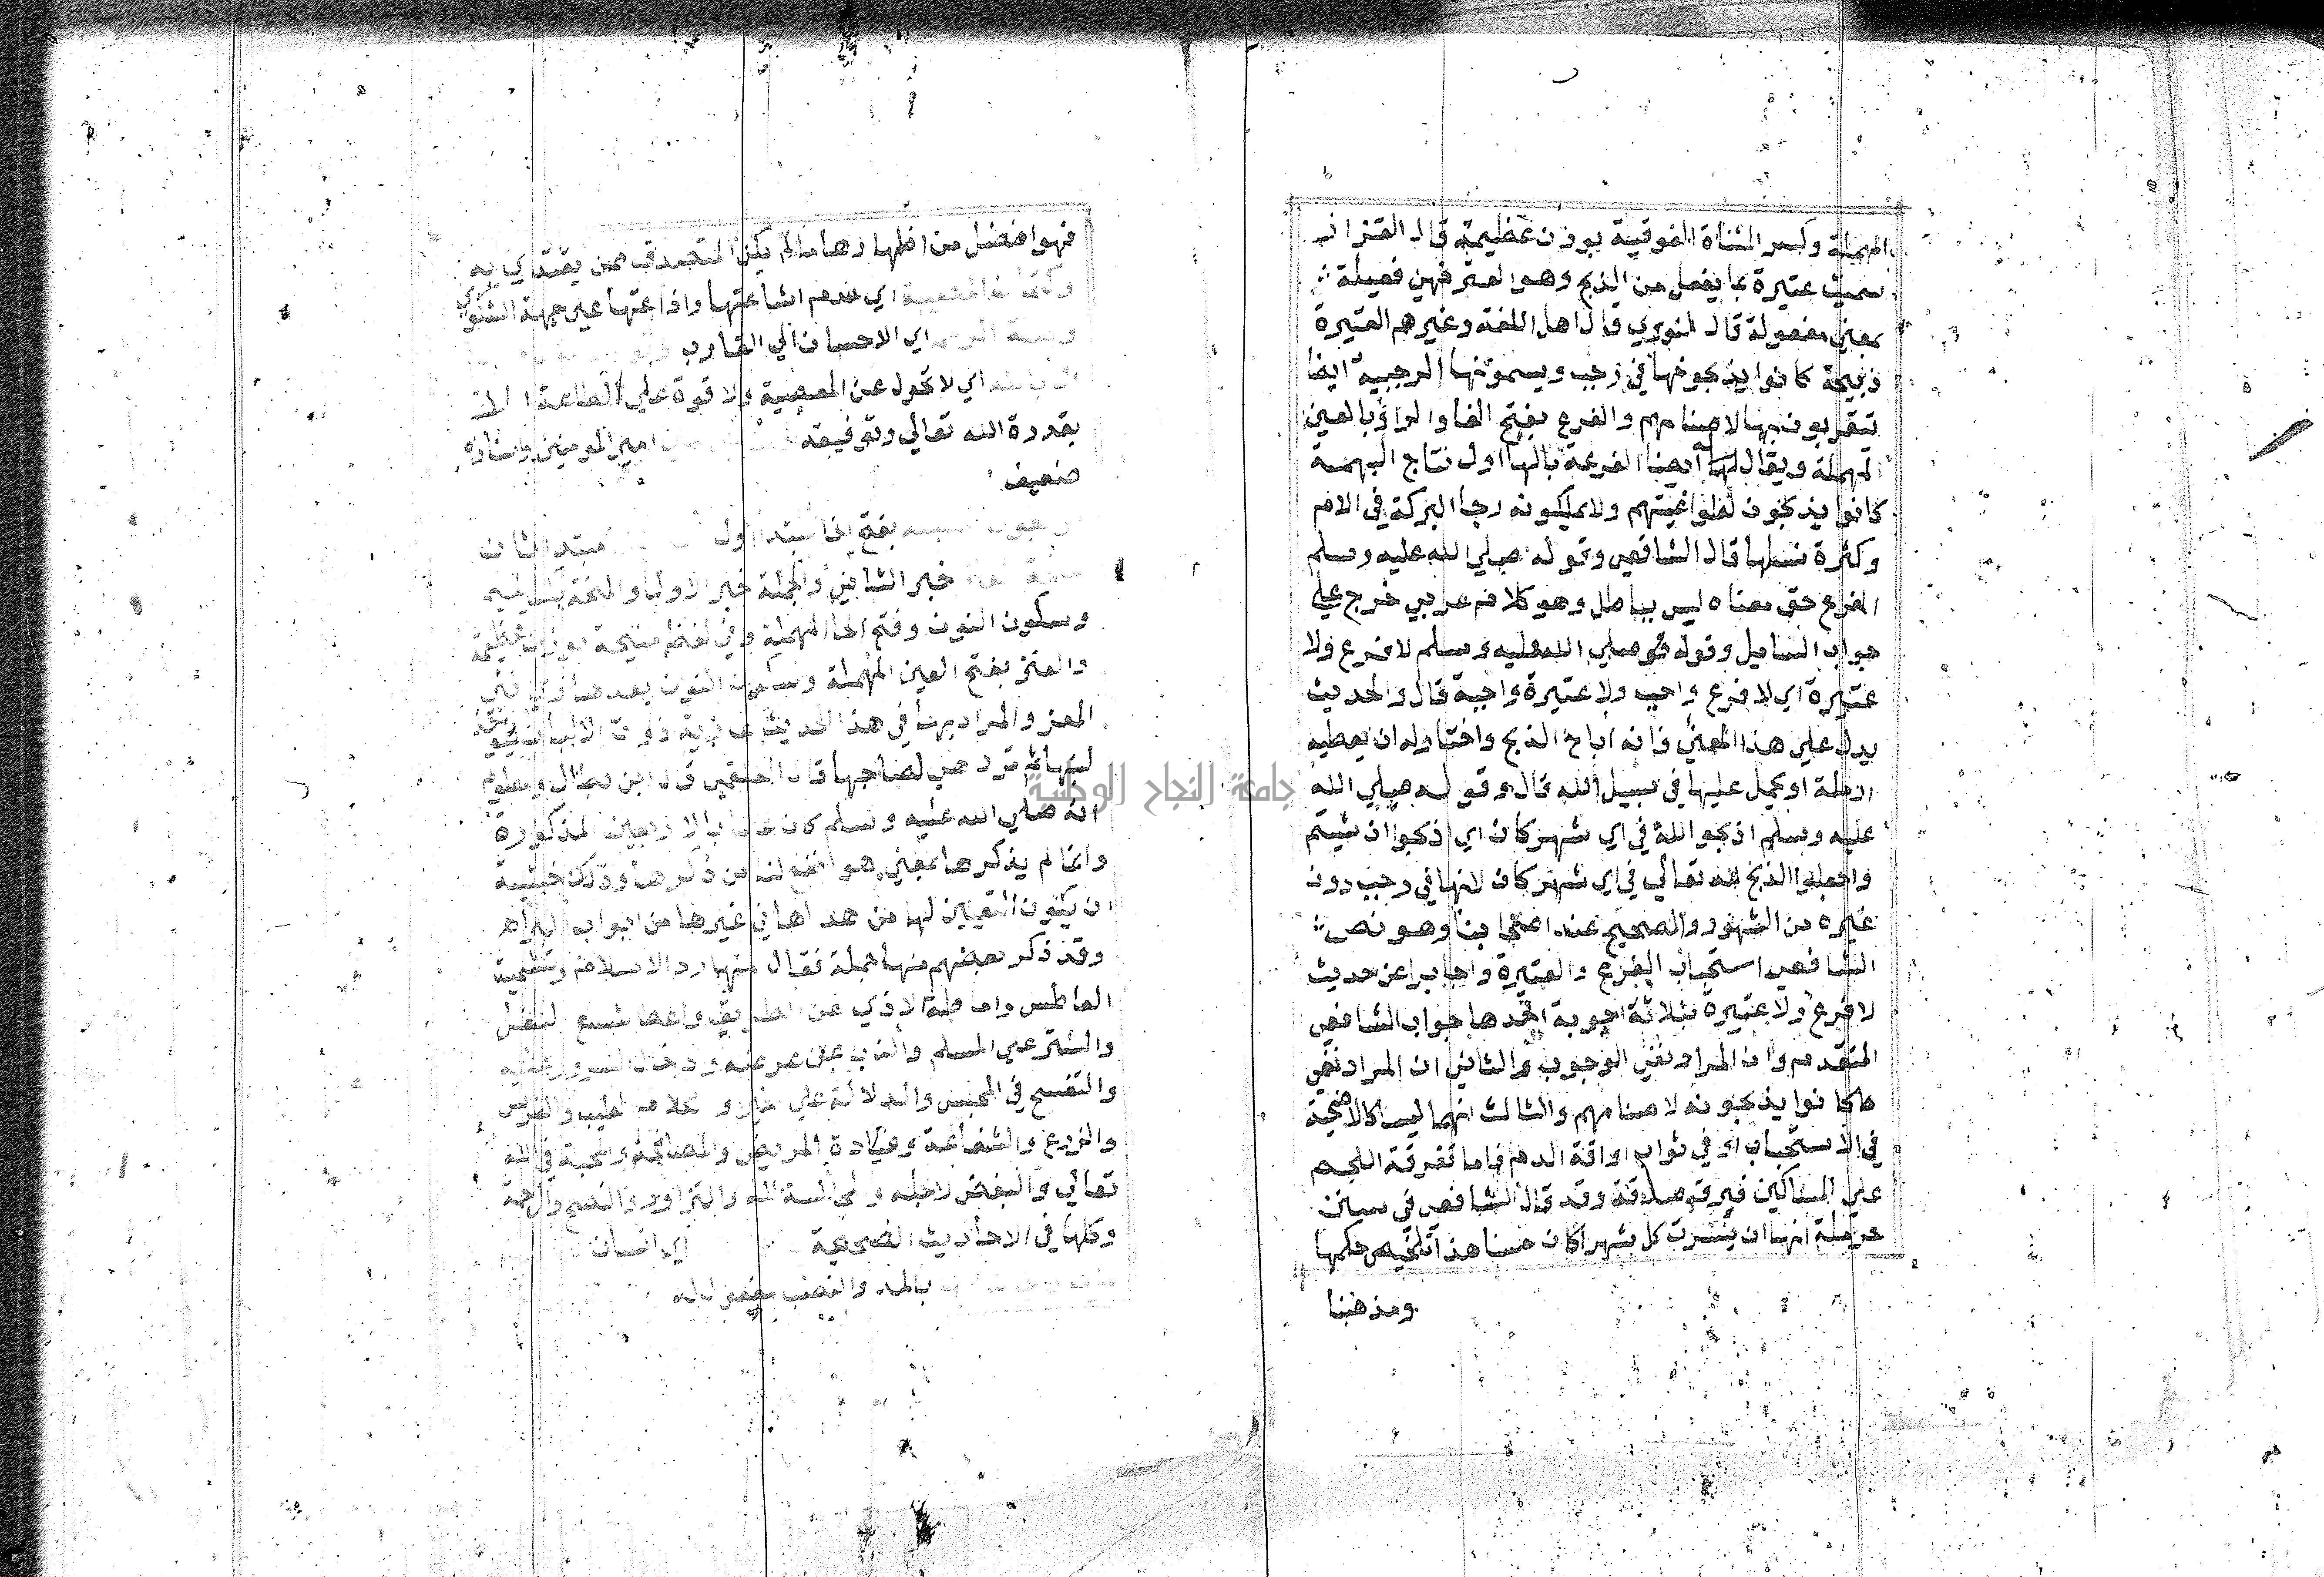 المهملة وكسر المثناة الفوقية بوزن عظيمة قال القزاز
سميت عتيرة بما يفعل من الذبح وهو العتر فهي فعيلة
بمعني مفعولة قال النووي قال اهل اللغة وغيرهم العتيرة
ذبيحة كانوا يذبحونها في رجب ويسمونها الرجبية ايضا
يتقربون بها لاصنامهم والفرع بفتح الفا والراو بالعين
المهملة ويقال لها ايضا الفرعة بالها اول نتاج البهيمة
كانوا يذبحون لطواغيتهم ولا يملكونه رجا البركة في الام
وكثرة نسلها قال الشافعي وقوله صلي الله عليه وسلم
الفرع حق معناه ليس بباطل وهو كلام عربي خرج علي
جواب السايل وقوله صلي الله عليه وسلم لا فرع ولا
عتيرة اي لا فرع واجب ولا عتيرة واجبة قال والحديث
يدل علي هذا المعني فانه اباح الذبح واختار له ان يعطيه
ارملة او يحمل عليها في سبيل الله قال وقوله صلي الله
عليه وسلم اذبحوا لله في اي شهر كان اي اذبحوا ان شيتم
واجعلوا الذبح لله تعالي في اي شهر كان لانها في رجب دون
غيره من الشهور والصحيح عند اصحابنا وهو نص
الشافعي استحباب الفرع والعتيرة واجابوا عن حديث
لا فرع ولا عتيرة بثلاثة اجوبة احدها جواب الشافعي
المتقدم وان المراد نفي الوجوب والثاني ان المراد نفي
ما كانوا يذبحونه لاصنامهم والثالث انهما ليسا كالاضحية
في الاستحباب او في ثواب اراقة الدم فاما تفرقة اللحم
علي المساكين فبر وصدقة وقد قال الشافعي في سنن
حرملة انها ان تيسرت كل شهر كان حسنا هذا تلخيص حكمها
ومذهبنا
فهو افضل من اقلها وهذا ما لم يكن المتصدق ممن يقتدي به
المصيبة اي عدم اشاعتها واذاعتها علي جهة الشكوي
اي الاحسان الي القارب
اي لا تحول عن المعصية ولا قوة علي الطاعة الا
بقدرة الله تعالي وتوفيقه امير المومنين واسناده
ضعيف
بفتح الخا مبتدا اول مبتدا ثان
خبر الثاني والجملة خبر الاول والمنحة بكسر الميم
وسكون النون وفتح الحا المهملة وفي لفظ منيحة بوزن عظيمة
والعنز بفتح العين المهملة وسكون النون بعدها زاي انثي
المعز والمراد بها في هذا الحديث عارية ذوات الالبان ليوخذ
لبنها ثم ترد هي لصاحبها قال العلقمي قال ابن بطال ومعلوم
انه صلي الله عليه وسلم كان عالما بالاربعين المذكورة
وانما لم يذكرها لمعني هو انفع لنا من ذكرها وذلك خشية
ان يكون التعيين لها مزهدا في غيرها من ابواب البر اه
وقد ذكر بعضهم منها جملة فقال منها رد السلام وتشميت
العاطس واماطة الاذي عن الطريق واعطا شسع النعل
والستر علي المسلم والذب عن عرضه وادخال السرور عليه
والتفسح في المجلس والدلالة علي خير وكلام طيب والغرس
والزرع والشفاعة وعيادة المريض والمصافحة والمحبة في الله
تعالي والبغض لاجله والمجالسة لله والتزاور والنصح والرحمة
وكلها في الاحاديث الصحيحة اي انسان
بالمد والنصب مفعول له
جامعة النجاح الوطنية